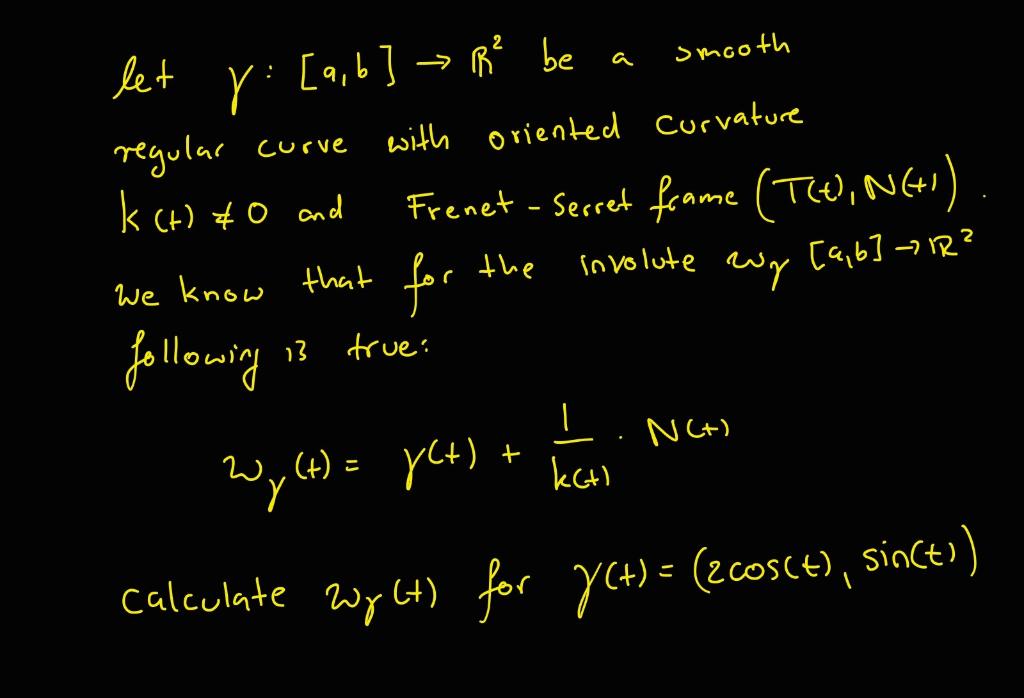 let γ: [a,b] → ℝ² be a smooth
regular curve with oriented curvature
k(t) ≠ 0 and Frenet-Serret frame (T(t), N(t)).
we know that for the involute wγ [a,b] → ℝ²
following is true:
wγ(t) = γ(t) + 1/k(t) · N(t)
calculate wγ(t) for γ(t) = (2cos(t), sin(t))